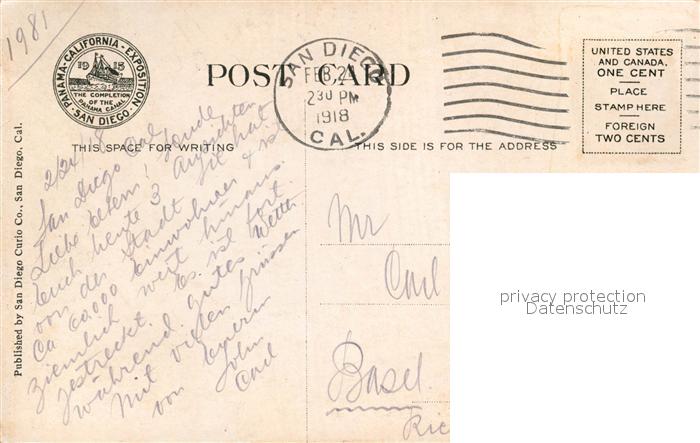 1981
PANAMA-CALIFORNIA-EXPOSITION
1915
THE COMPLETION
OF THE
PANAMA CANAL
SAN DIEGO
POST CARD
SAN DIEGO
FEB 24
230 PM
1918
CAL.
UNITED STATES
AND CANADA,
ONE CENT
PLACE
STAMP HERE
FOREIGN
TWO CENTS
THIS SPACE FOR WRITING
THIS SIDE IS FOR THE ADDRESS
Published by San Diego Curio Co., San Diego, Cal.
2/24 18
San Diego Cal
Liebe Eltern! Sende
Euch heute 3 Ansichten
von der Stadt
Ca 60,000 Einwohner &
ziemlich weit hinaus
gestreckt. Es ist fort
während gutes Wetter
Mit vielen Grüssen
von Euerm
John
Carl
Mr
Carl
Basel.
Ric
privacy protection
Datenschutz